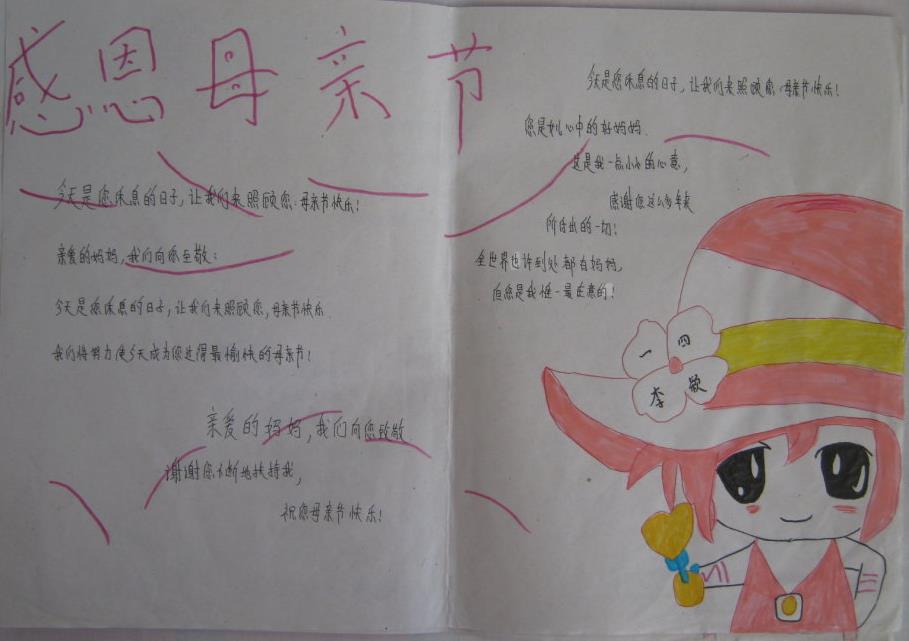 感恩母亲节
今天是您休息的日子，让我们来照顾您：母亲节快乐！
亲爱的妈妈，我们向您至敬：
今天是您休息的日子，让我们来照顾您，母亲节快乐.
我们将努力使今天成为您过得最愉快的母亲节！
亲爱的妈妈，我们向您致敬
谢谢您不断地扶持我，
祝您母亲节快乐！
今天是您休息的日子，让我们来照顾您：母亲节快乐！
您是我心中的好妈妈.
这是我一点小小的心意，
感谢您这么多年来
所付出的一切！
全世界也许到处都有妈妈，
但您是我惟一最在意的！
一四
李颖